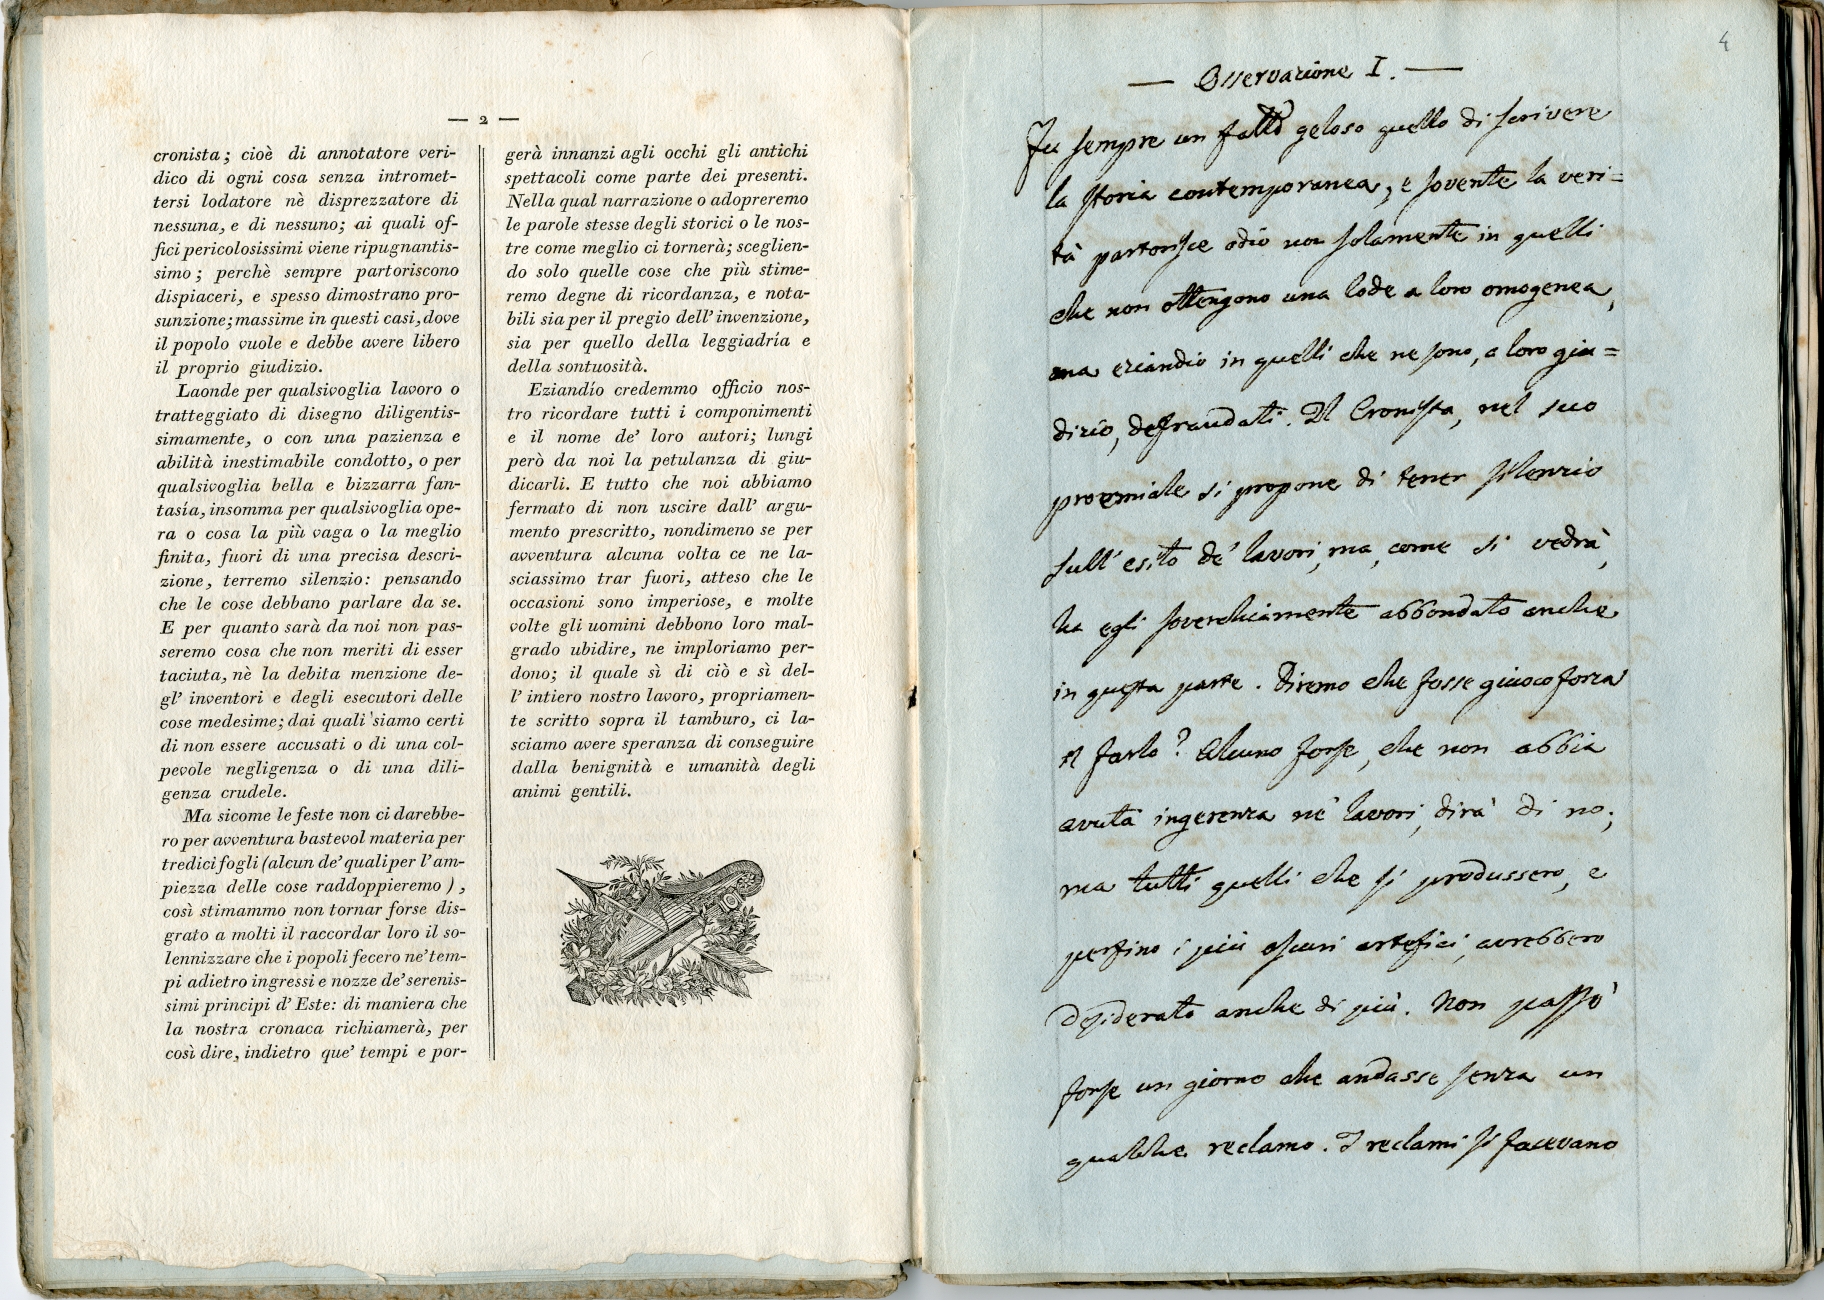 — 2 —
cronista; cioè di annotatore veri-
dico di ogni cosa senza intromet-
tersi lodatore nè disprezzatore di
nessuna, e di nessuno; ai quali of-
fici pericolosissimi viene ripugnantis-
simo; perchè sempre partoriscono
dispiaceri, e spesso dimostrano pro-
sunzione; massime in questi casi, dove
il popolo vuole e debbe avere libero
il proprio giudizio.
Laonde per qualsivoglia lavoro o
tratteggiato di disegno diligentis-
simamente, o con una pazienza e
abilità inestimabile condotto, o per
qualsivoglia bella e bizzarra fan-
tasía, insomma per qualsivoglia ope-
ra o cosa la più vaga o la meglio
finita, fuori di una precisa descri-
zione, terremo silenzio: pensando
che le cose debbano parlare da se.
E per quanto sarà da noi non pas-
seremo cosa che non meriti di esser
taciuta, nè la debita menzione de-
gl' inventori e degli esecutori delle
cose medesime; dai quali siamo certi
di non essere accusati o di una col-
pevole negligenza o di una dili-
genza crudele.
Ma sicome le feste non ci darebbe-
ro per avventura bastevol materia per
tredici fogli (alcun de' quali per l'am-
piezza delle cose raddoppieremo),
così stimammo non tornar forse dis-
grato a molti il raccordar loro il so-
lennizzare che i popoli fecero ne' tem-
pi adietro ingressi e nozze de' serenis-
simi principi d' Este: di maniera che
la nostra cronaca richiamerà, per
così dire, indietro que' tempi e por-
gerà innanzi agli occhi gli antichi
spettacoli come parte dei presenti.
Nella qual narrazione o adopreremo
le parole stesse degli storici o le nos-
tre come meglio ci tornerà; sceglien-
do solo quelle cose che più stime-
remo degne di ricordanza, e nota-
bili sia per il pregio dell' invenzione,
sia per quello della leggiadría e
della sontuosità.
Eziandío credemmo officio nos-
tro ricordare tutti i componimenti
e il nome de' loro autori; lungi
però da noi la petulanza di giu-
dicarli. E tutto che noi abbiamo
fermato di non uscire dall' argu-
mento prescritto, nondimeno se per
avventura alcuna volta ce ne la-
sciassimo trar fuori, atteso che le
occasioni sono imperiose, e molte
volte gli uomini debbono loro mal-
grado ubidire, ne imploriamo per-
dono; il quale sì di ciò e sì del-
l' intiero nostro lavoro, propriamen-
te scritto sopra il tamburo, ci la-
sciamo avere speranza di conseguire
dalla benignità e umanità degli
animi gentili.
4
— Osservazione I. —
Fu sempre un fatto geloso quello di scrivere
la storia contemporanea, e sovente la veri=
tà partorisce odio non solamente in quelli
che non ottengono una lode a loro omogenea,
ma eziandio in quelli che ne sono, a loro giu=
dizio, defraudati. Il Cronista, nel suo
proemiale si propone di tener silenzio
sull' esito de' lavori, ma, come si vedrà,
ha egli soverchiamente abbondato anche
in questa parte. Diremo che fosse giuocoforza
il farlo? Alcuno forse, che non abbia
avuta ingerenza ne' lavori, dirà di no;
ma tutti quelli che si produssero, e
perfino i più oscuri artefici, avrebbero
desiderato anche di più. Non passò
forse un giorno che andasse senza un
qualche reclamo. I reclami si facevano